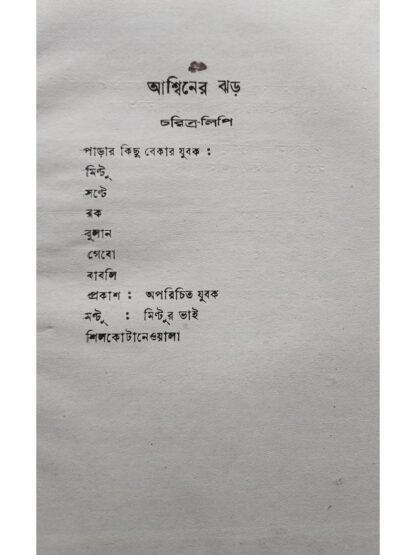 আশ্বিনের ঝড়
চরিত্র-লিপি
পাড়ার কিছু বেকার যুবক :
মিন্টু
সন্টে
রক
বুলান
গেবো
বাবলি
প্রকাশ : অপরিচিত যুবক
মন্টু : মিন্টুর ভাই
শিলকোটানেওয়ালা